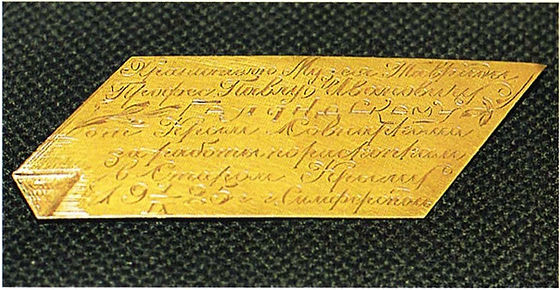 Хранителю Музея Тавриды
Профес. Павлу Ивановичу
Голландскому
от Крым Совнаркома
за работы по раскопкам
в Старом Крыму
19 25 г. г. Симферополь